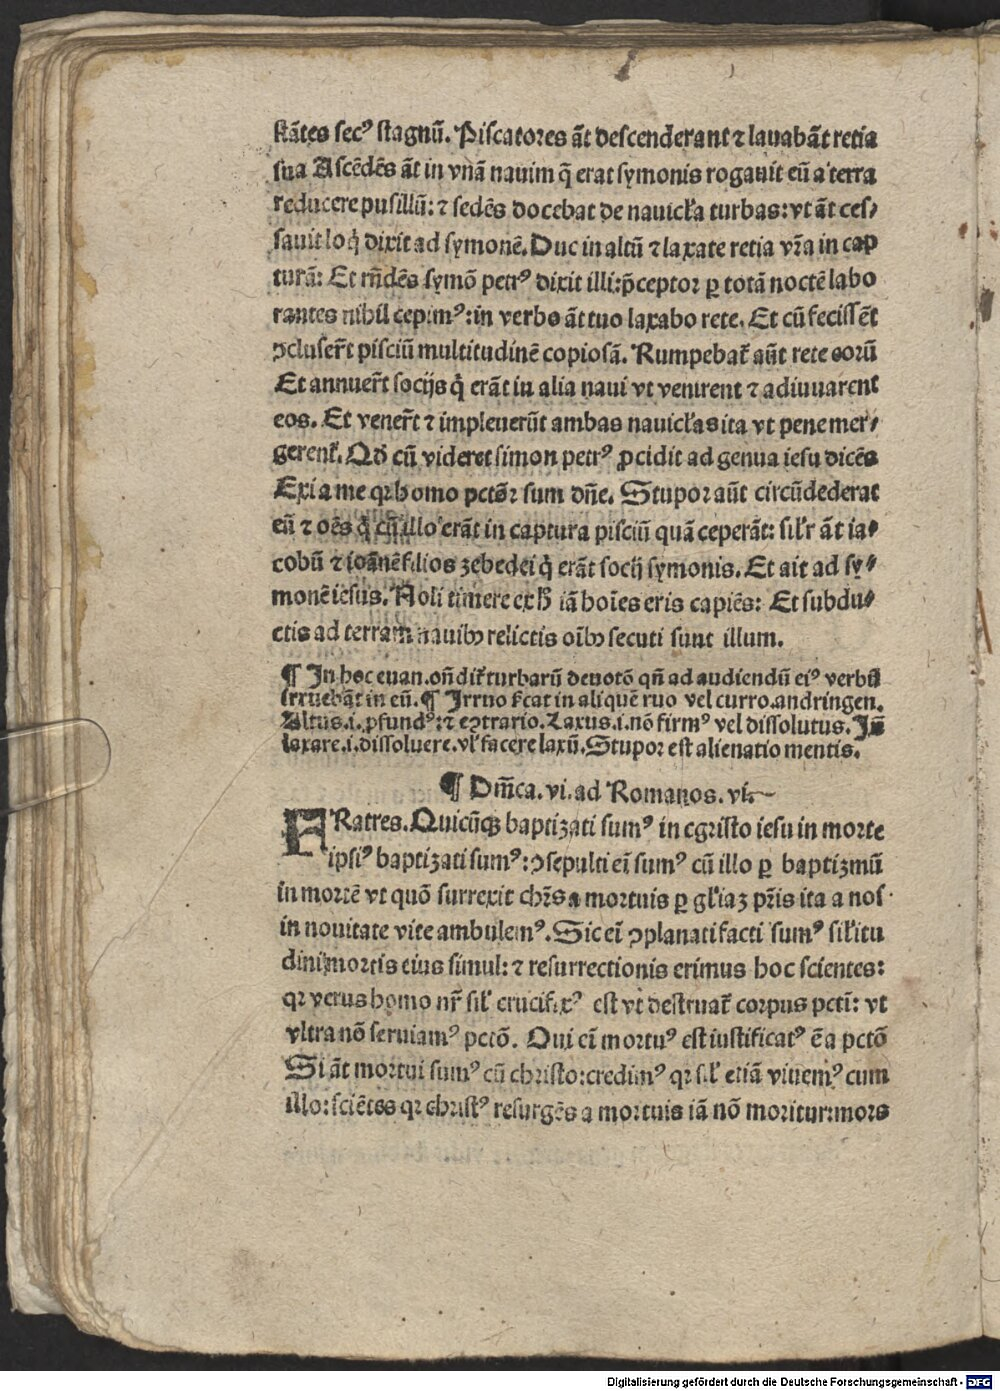 stātes secꝰ stagnū. Piscatores āt descenderant ⁊ lauabāt retia
sua Ascēdēs āt in vnā nauim q̄ erat symonis rogauit eū a terra
reducere pusillū: ⁊ sedēs docebat de nauicl'a turbas: vt āt ces⸗
sauit loq̇ dixit ad symonē. Duc in altū ⁊ laxate retia vr̄a in cap
turā: Et rn̄dēs symō petrꝰ dixit illi: p̄ceptor ꝑ totā noctē labo
rantes nihil cepimꝰ: in verbo āt tuo laxabo rete. Et cū fecissēt
ꝯcluser̄t pisciū multitudinē copiosā. Rumpebat᷑ aūt rete eorū
Et annuer̄t socijs q̇ erāt in alia naui vt venirent ⁊ adiuuarent
eos. Et vener̄t ⁊ impleuerūt ambas nauicl'as ita vt pene mer⸗
gerent᷑. Qḋ cū videret simon petrꝰ ꝓcidit ad genua iesu dicēs
Exi a me qꝛ homo pctōꝛ sum dn̄e. Stupor aūt circūdederat
eū ⁊ oēs q̇ cū illo erāt in captura pisciū quā ceperāt: sil'r āt ia⸗
cobū ⁊ ioānē filios zebedei q̇ erāt socij symonis. Et ait ad sy⸗
monē iesus. Noli timere ex ħ iā hoīes eris capiēs: Et subdu⸗
ctis ad terram nauibꝫ relictis oībꝫ secuti sunt illum.
¶ In hoc euan. on̄dit᷑ turbarū deuotō qn̄ ad audiendū eiꝰ verbū
irruebāt in eū. ¶ Irruo s̄cat in aliquē ruo vel curro. andringen.
Altus .i. ꝓfundꝰ: ⁊ e ꝯtrario. Laxus .i. nō firmꝰ vel dissolutus. In̄
laxare .i. dissoluere. vl' facere laxū. Stupor est alienatio mentis.
¶ Dm̄ca. vi. ad Romanos. vi.
FRatres. Quicūqꝫ baptizati sumꝰ in cgristo iesu in morte
ipsiꝰ baptizati sumꝰ: ꝯsepulti ei᷑ sumꝰ cū illo ꝑ baptizmū
in mortē vt quō surrexit chr̄s a mortuis ꝑ gl'iaꝫ pr̄is ita a nos
in nouitate vite ambulemꝰ. Sic ei᷑ ꝯplanati facti sumꝰ sil'itu
dini mortis eius simul: ⁊ resurrectionis erimus hoc scientes:
qꝛ verus homo nr̄ sil' crucifixꝰ est vt destruat᷑ corpus pcti: vt
vltra nō seruiamꝰ pctō. Qui ei᷑ mortuꝰ est iustificatꝰ ē a pctō
Si āt mortui sumꝰ cū christo: credimꝰ qꝛ sil' etiā viuemꝰ cum
illo: sciētes qꝛ christꝰ resurgēs a mortuis iā nō moritur: mors
Digitalisierung gefördert durch die Deutsche Forschungsgemeinschaft - DFG